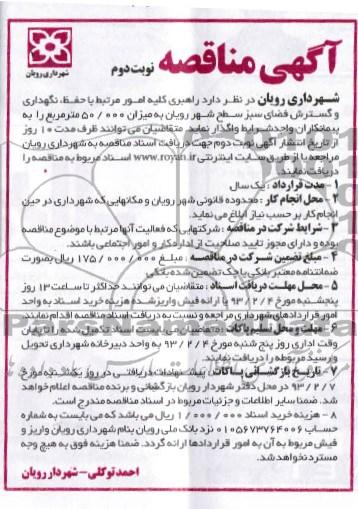 آگهی مناقصه نوبت دوم
شهرداری رویان
شهرداری رویان در نظر دارد راهبری کلیه امور مرتبط با حفظ، نگهداری
و گسترش فضای سبز سطح شهر رویان به میزان ۵۰/۰۰۰ مترمربع را به
پیمانکاران واجد شرایط واگذار نماید. متقاضیان می توانند ظرف مدت ۱۰ روز
از تاریخ انتشار آگهی نوبت دوم جهت دریافت اسناد مناقصه به شهرداری رویان
مراجعه یا از طریق سایت اینترنتی www.royan.ir اسناد مربوط به مناقصه را
دریافت نمایند.
۱- مدت قرارداد : یک سال
۲- محل انجام کار : محدوده قانونی شهر رویان و مکانهایی که شهرداری در حین
انجام کار بر حسب نیاز ابلاغ می نماید.
۳- شرایط شرکت در مناقصه : شرکتهایی که فعالیت آنها مرتبط با موضوع مناقصه
بوده و دارای مجوز تایید صلاحیت از اداره کار و امور اجتماعی باشند.
۴- مبلغ تضمین شرکت در مناقصه : مبلغ ۱۷۵/۰۰۰/۰۰۰ ریال بصورت
ضمانتنامه معتبر بانکی یا چک تضمین شده بانکی
۵- محل مهلت دریافت اسناد : متقاضیان می توانند حداکثر تا ساعت ۱۳ روز
پنجشنبه مورخ ۹۴/۲/۳ با ارائه فیش واریز شده هزینه خرید اسناد به واحد
امور قراردادهای شهرداری مراجعه و نسبت به دریافت اسناد مناقصه اقدام نمایند.
۶- مهلت و محل تسلیم پاکات : متقاضیان می بایست اسناد تکمیل شده را تا پایان
وقت اداری روز پنج شنبه مورخ ۹۴/۲/۴ به واحد دبیرخانه شهرداری تحویل
و رسید مربوطه را دریافت نمایند.
۷- تاریخ بازگشایی پاکات : پیشنهادات دریافتی در روز یکشنبه مورخ
۹۴/۲/۷ در محل دفتر شهردار رویان بازگشائی و برنده مناقصه اعلام خواهد
شد. ضمنا سایر اطلاعات و جزئیات مربوط در اسناد مناقصه مندرج است.
۸- هزینه خرید اسناد ۱/۰۰۰/۰۰۰ ریال می باشد که می بایست به شماره
حساب ۰۱۰۵۶۷۳۷۶۴۰۰۶ نزد بانک ملی رویان بنام شهرداری رویان واریز و
فیش مربوط به آن به امور قراردادها ارائه گردد. ضمنا هزینه فوق به هیچ وجه
مسترد نخواهد شد.
احمد توکلی - شهردار رویان